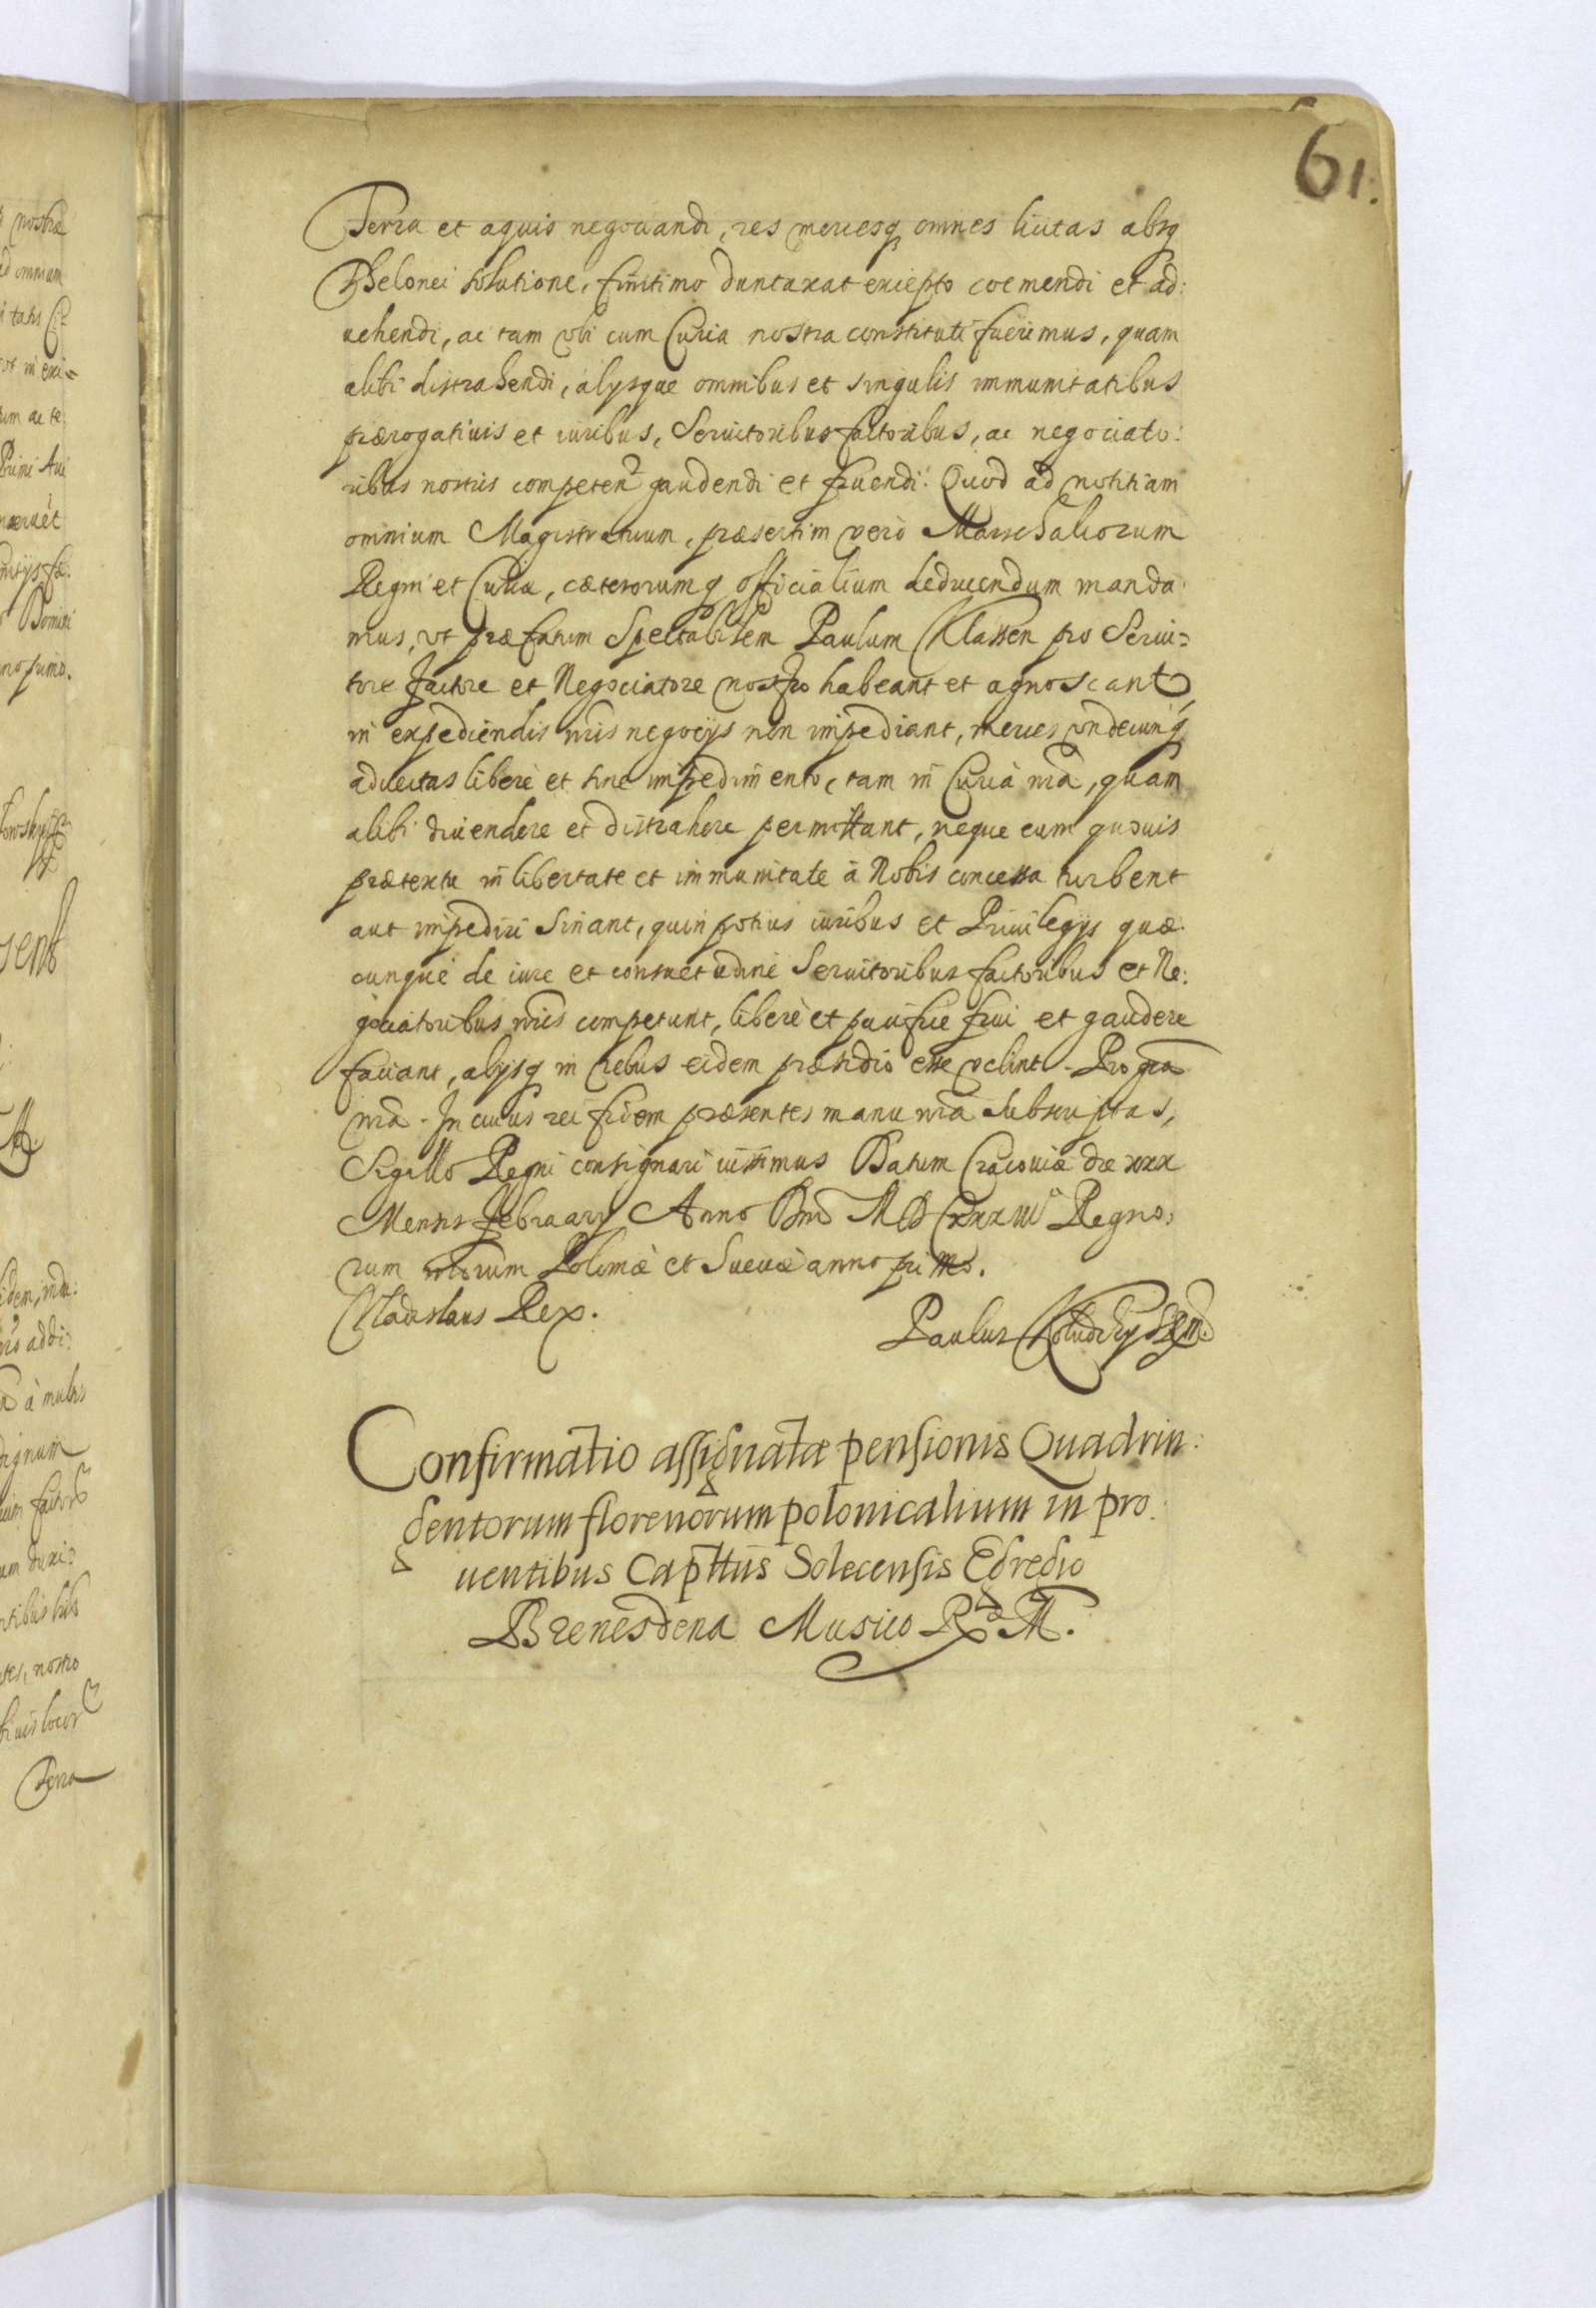 61.
Terra et aquis negociandi, res mercesq omnes licitas absq
Thelonei solutione, finitimo duntaxat excepto coemendi et ad:
uehendi, ac tam vbi cum Curia nostra constituti fuerimus, quam
alibi distrahendi, alysque omnibus et singulis immunitatibus
prærogatiuis et iuribus, Seruitoribus factoribus, ac negociato:
ribus nostris competen gaudendi et fruendi. Quod ad notitiam
omnium Magistratuum, præsertim vero Marschalcorum
Regni et Curiæ, cæterorumq officialium deducendum manda:
mus, vt præfatum Spectabilem Paulum Klassen pro Serui=
tore factore et Negociatore nostro habeant et agnoscant,
in expediendis nris negocijs non impediant, merces vndecunq
aduectas liberè et sine impedimento, tam in Curia nrâ, quam
alibi diuendere et distrahere permittant, neque eum quouis
prætextu in libertate et immunitate à Nobis concessa turbent
aut impediri sinant, quin potius iuribus et Priuilegijs quæ:
cunque de iure et consuetudine Seruitoribus factoribus et Ne:
gociatoribus nris competunt, liberè et pacifice frui et gaudere
faciant, alijsq in rebus eidem præsidio esse velint. Pro gra
nra. In cuius rei fidem præsentes manu nra subscriptas,
Sigillo Regni consignari iussimus Datum Cracouiæ die xxx
Mensis february Anno Dni MDCxxxiii Regno:
rum nrorum Poloniæ et Sueciæ anno primo.
Vladislaus Rex.
Paulus
Confirmatio assignatæ pensionis Quadrin:
gentorum florenorum polonicalium in pro:
uentibus Capttus Solecensis Egregio
Brenesdena Musico R M.